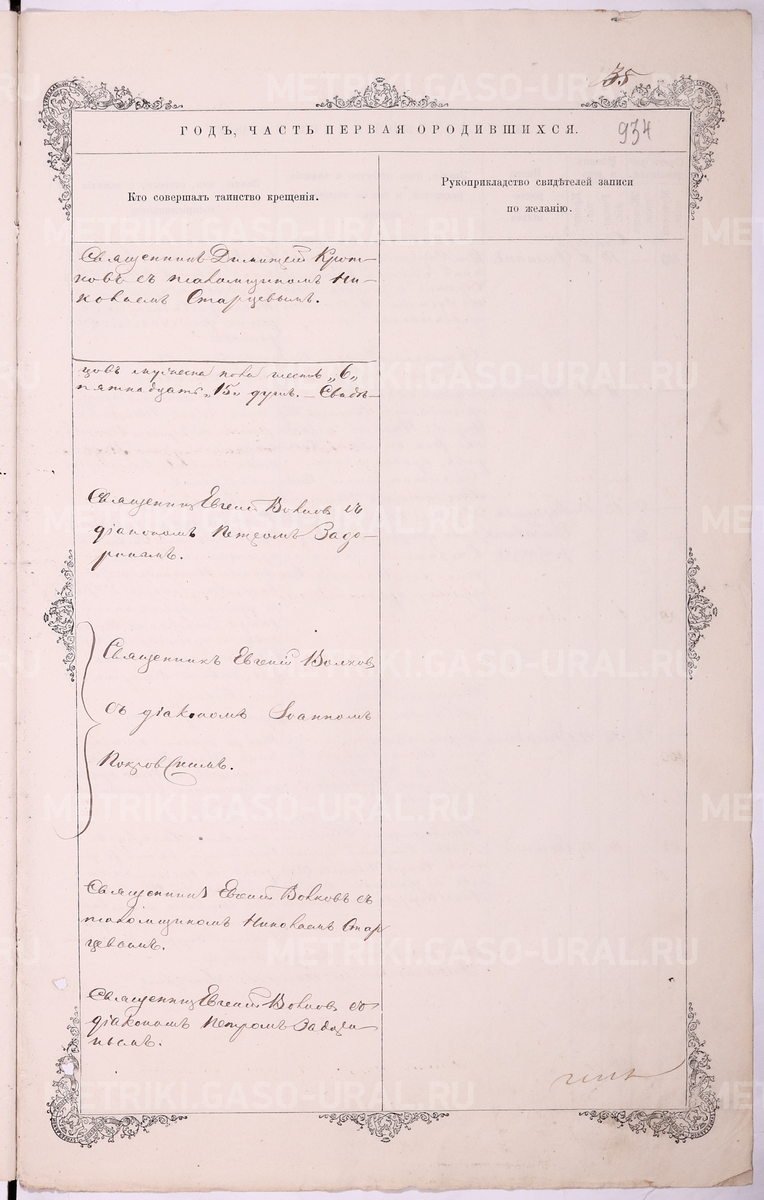 35
934
ГОДЪ, ЧАСТЬ ПЕРВАЯ О РОДИВШИХСЯ.
Кто совершалъ таинство крещенія.
Рукоприкладство свидѣтелей записи
по желанію.
Священникъ Димитрій Крот-
ковъ съ псаломщикомъ Ни-
колаемъ Старцевымъ.
цовъ мужеска пола шесть „6„
пятнадцать „15„ душъ. — Свидѣ-
Священникъ Евгеній Волковъ съ
діакономъ Петромъ Задо-
ринымъ.
Священникъ Евгеній Волковъ
съ діакономъ Іоанномъ
Покровскимъ.
Священникъ Евгеній Волковъ съ
псаломщикомъ Николаемъ Стар
цевымъ.
Священникъ Евгеній Волковъ съ
діакономъ Петромъ Задори-
нымъ.
METRIKI.GASO-URAL.RU